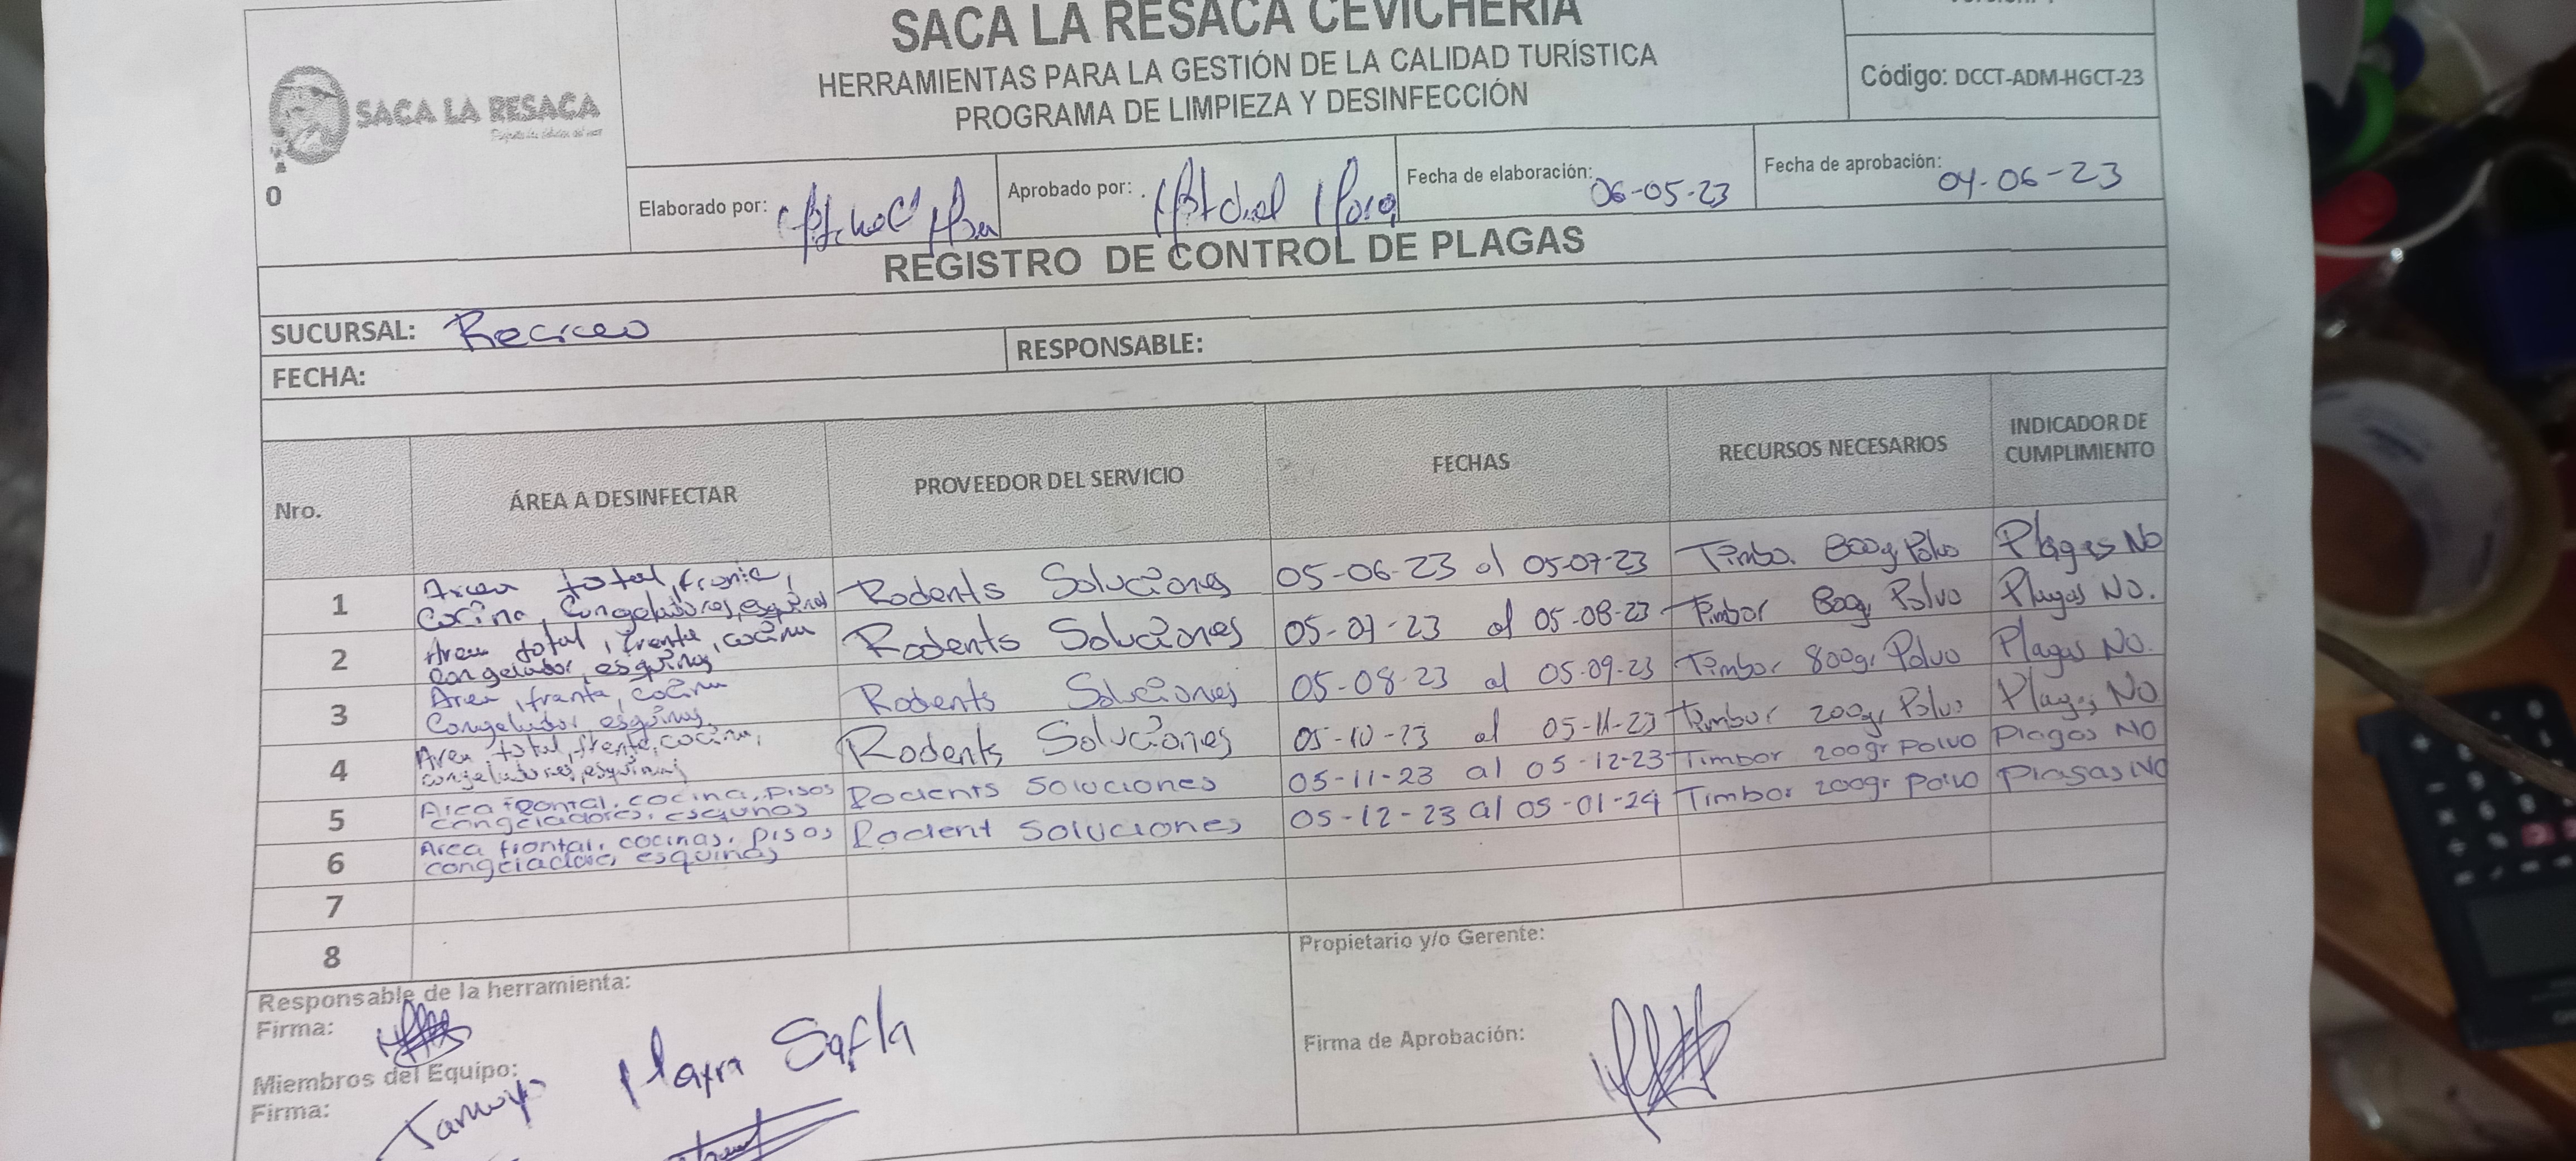 SACA LA RESACA CEVICHERIA
HERRAMIENTAS PARA LA GESTIÓN DE LA CALIDAD TURÍSTICA
PROGRAMA DE LIMPIEZA Y DESINFECCIÓN
Código: DCCT-ADM-HGCT-23
SACA LA RESACA
0
Elaborado por:
Aprobado por:
Fecha de elaboración: 06-05-23
Fecha de aprobación: 04-06-23
REGISTRO DE CONTROL DE PLAGAS
SUCURSAL:
RESPONSABLE:
FECHA:
Nro. ÁREA A DESINFECTAR PROVEEDOR DEL SERVICIO FECHAS RECURSOS NECESARIOS INDICADOR DE CUMPLIMIENTO
1 Area total, Cocina, Congeladores, Rodents Soluciones 05-06-23 al 05-07-23 Timbo. 800g Polvo Plagas No
2 Area total, frente, cocina congelador, esquinas Rodents Soluciones 05-07-23 al 05-08-23 Timbor 800g Polvo Plagas No.
3 Area, frente, cocina Congelador esquinas Rodents Soluciones 05-08-23 al 05-09-23 Timbor 800gr Polvo Plagas No.
4 Area total, frente, cocina, congeladores, esquinas Rodents Soluciones 05-10-23 al 05-11-23 Timbor 200gr Polvo Plagas No
5 Area frontal, cocina, pisos congeladores, esquinas Rodents Soluciones 05-11-23 al 05-12-23 Timbor 200gr Polvo Plagas NO
6 Area frontal, cocinas, pisos esquinas Rodent Soluciones 05-12-23 al 05-01-24 Timbor 200gr Polvo Plagas NO
7
8
Responsable de la herramienta:
Firma:
Miembros del Equipo:
Firma:
Propietario y/o Gerente:
Firma de Aprobación: